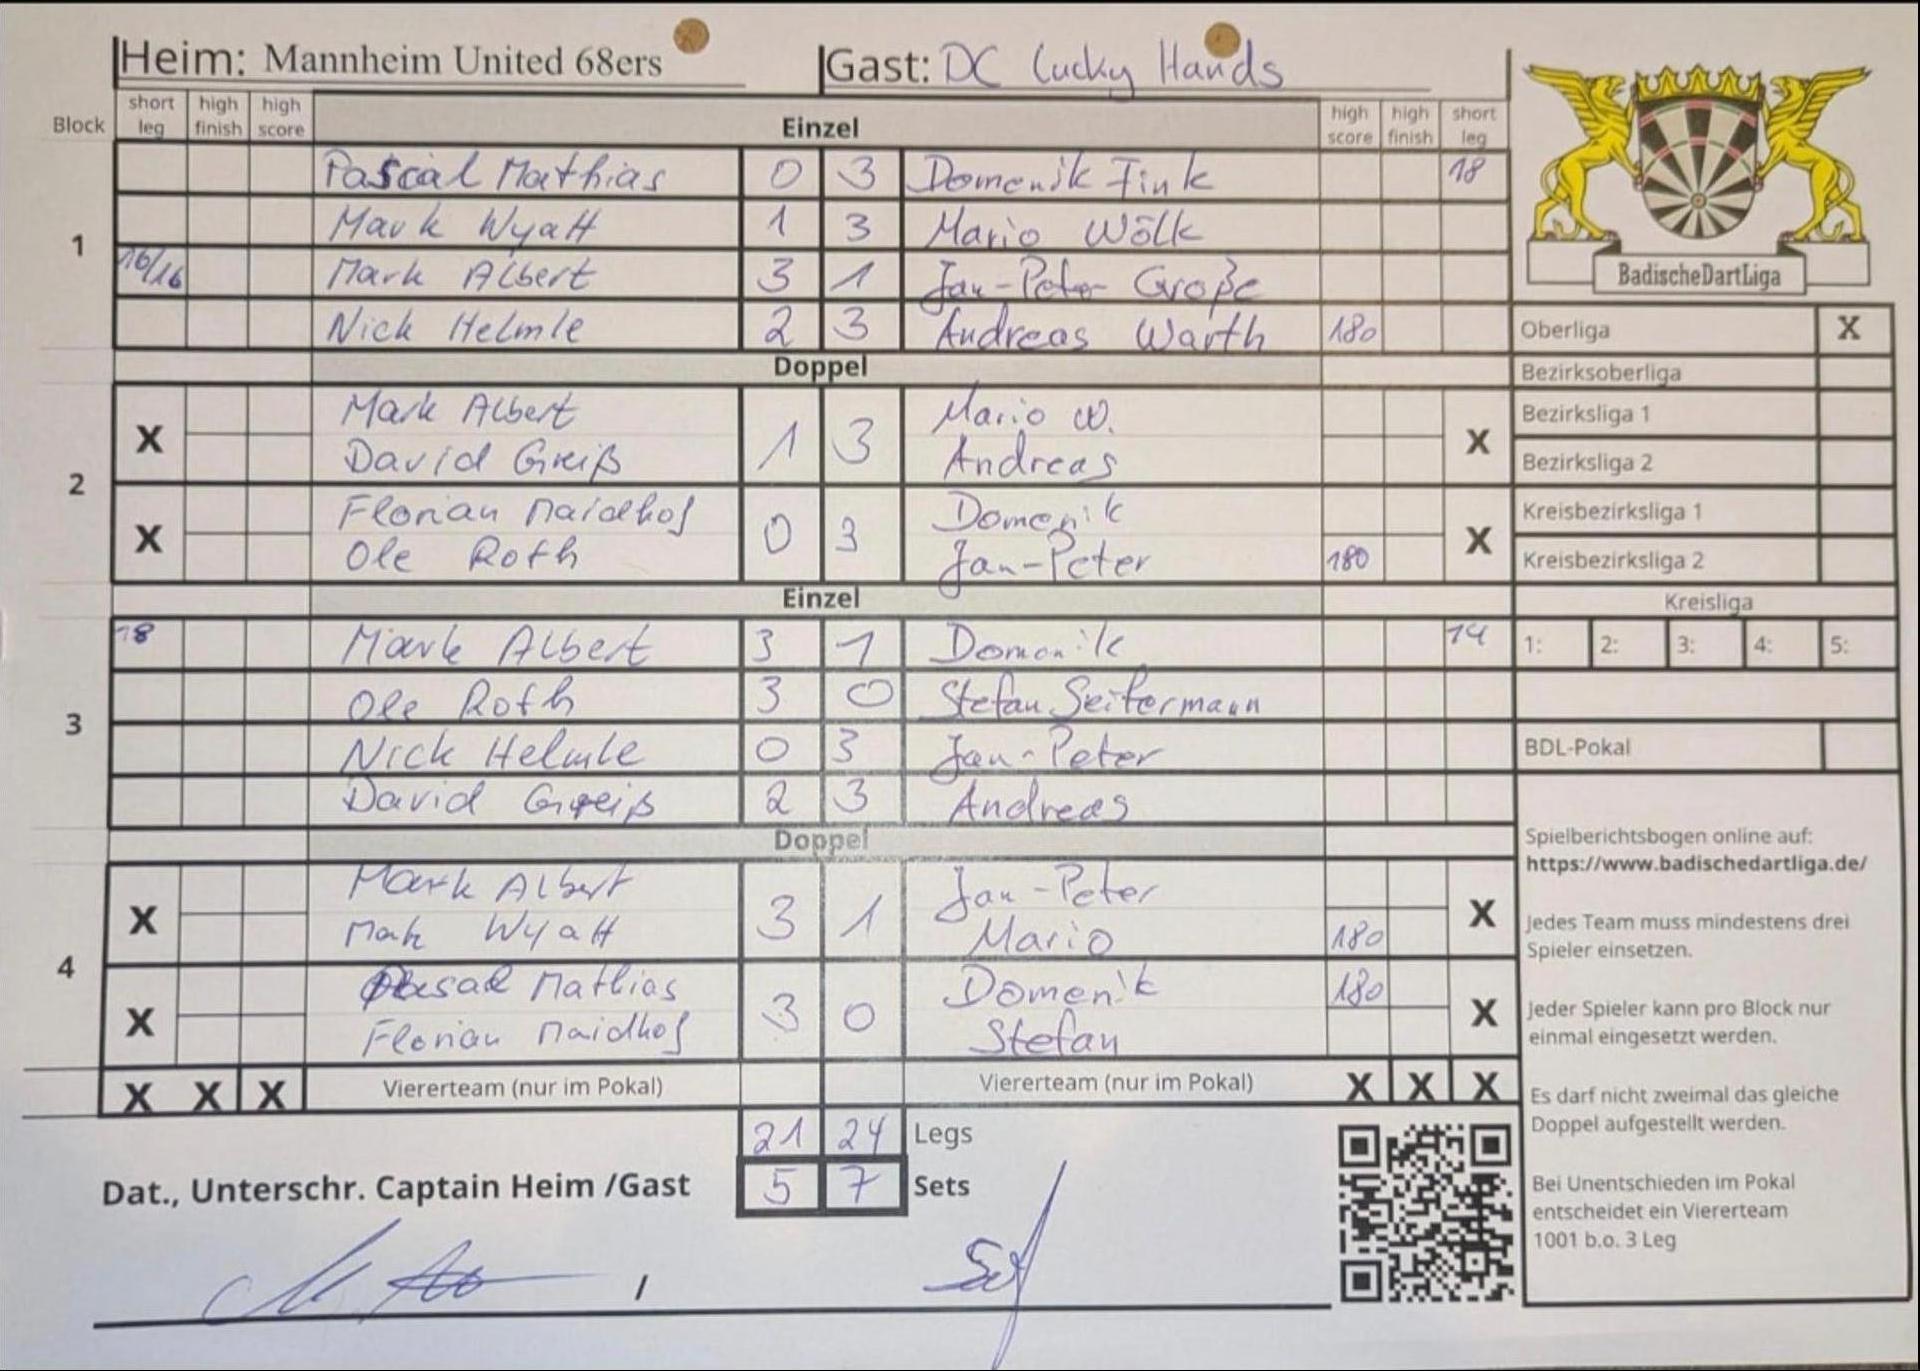 Heim: Mannheim United 68ers Gast: DC Lucky Hands
Block short leg high finish high score Einzel high score high finish short leg
Pascal Mathias 0 3 Domenik Fink 18
1 Mark Wyatt 1 3 Mario Wölk
16/16 Mark Albert 3 1 Jan-Peter Große
Nick Helmle 2 3 Andreas Warth 180
BadischeDartLiga
Oberliga X
Doppel
Bezirksoberliga
2
X Mark Albert 1 3 Mario W. X
David Greiß Andreas
Bezirksliga 1
Bezirksliga 2
X Florian Maidhof 0 3 Domenik X
Ole Roth Jan-Peter 180
Kreisbezirksliga 1
Kreisbezirksliga 2
Einzel
Kreisliga
1: 2: 3: 4: 5:
18 Mark Albert 3 1 Domenik 14
Ole Roth 3 0 Stefan Seitermann
3 Nick Helmle 0 3 Jan-Peter
David Greiß 2 3 Andreas
BDL-Pokal
Doppel
4
X Mark Albert 3 1 Jan-Peter X
Mark Wyatt Mario 180
X Pascal Mathias 3 0 Domenik 180 X
Florian Maidhof Stefan
X X X Viererteam (nur im Pokal) Viererteam (nur im Pokal) X X X
21 24 Legs
Dat., Unterschr. Captain Heim /Gast 5 7 Sets
/
Spielberichtsbogen online auf:
https://www.badischedartliga.de/
Jedes Team muss mindestens drei
Spieler einsetzen.
Jeder Spieler kann pro Block nur
einmal eingesetzt werden.
Es darf nicht zweimal das gleiche
Doppel aufgestellt werden.
Bei Unentschieden im Pokal
entscheidet ein Viererteam
1001 b.o. 3 Leg